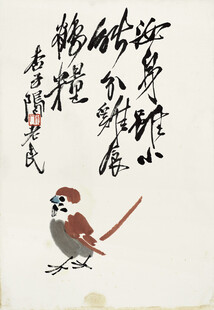 汝身雖小
能分雞食
鶴糧
杏子隝老民